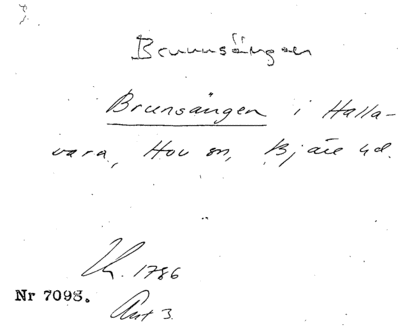 Brunnsängen
Brunsängen i Halla-
vara, Hov sn, Bjäre hd.
Lk. 1786
Nr 7093.
Akt 3.